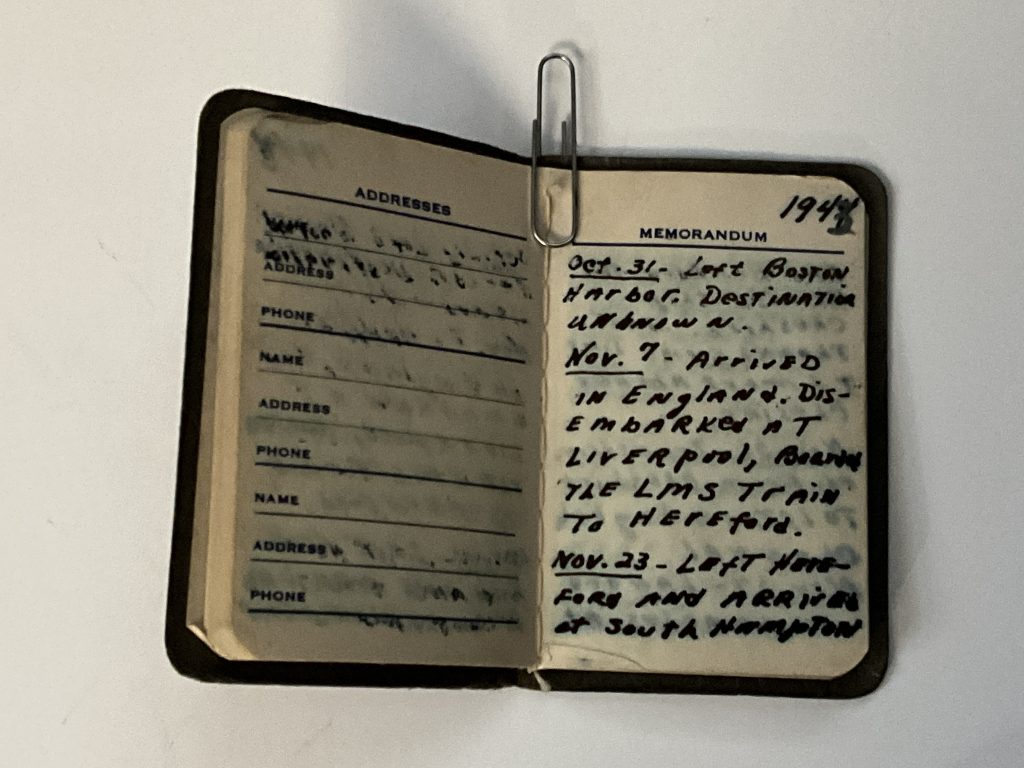 ADDRESSES
ADDRESS
PHONE
NAME
ADDRESS
PHONE
NAME
ADDRESS
PHONE
MEMORANDUM
Oct. 31- Left Boston
Harbor. Destination
unknown.
Nov. 7- Arrived
in England. Dis-
embarked at
Liverpool, Boarded
the LMS Train
To Hereford.
Nov. 23- Left Here-
ford and arrived
at South Hampton